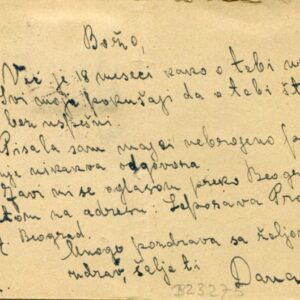 Božo,
Već je 18 meseci kako o tebi
Svi moji pokušaji da o tebi
bez uspešni.
Pisala sam majci nebrojeno
nikakva odgovora.
Javi mi se oglasom preko Beog
na adresu: Leposava
Beograd.
Mnogo pozdrava sa željom
zdrav, šalje ti Dana
B23275